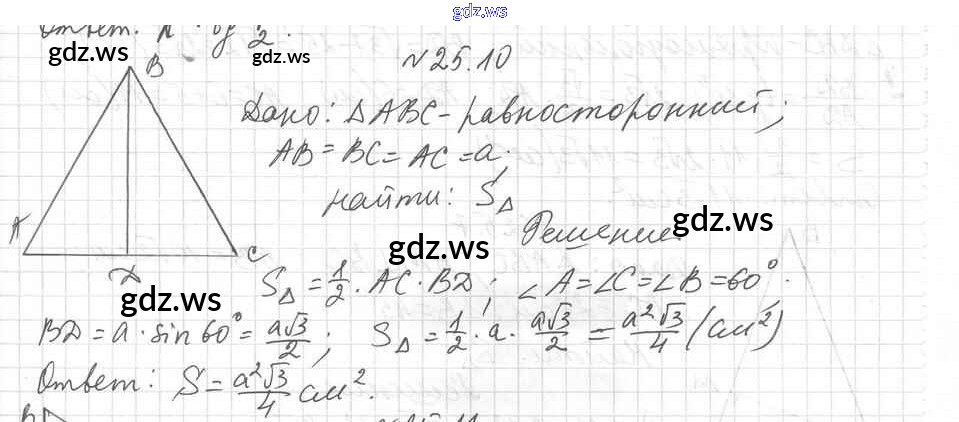 gdz.ws
Ответ: 2.
gdz.ws gdz.ws
№25.10
B
Дано: △ABC - равносторонний;
AB = BC = AC = a;
найти: S△
gdz.ws
A
Решение.
gdz.ws
C
Д
S△ = 1/2 · AC · BД; ∠A = ∠C = ∠B = 60°.
gdz.ws
BД = a · sin 60° = a√3/2; S△ = 1/2 · a · a√3/2 = a²√3/4 (см²)
Ответ: S = a²√3/4 см².
B